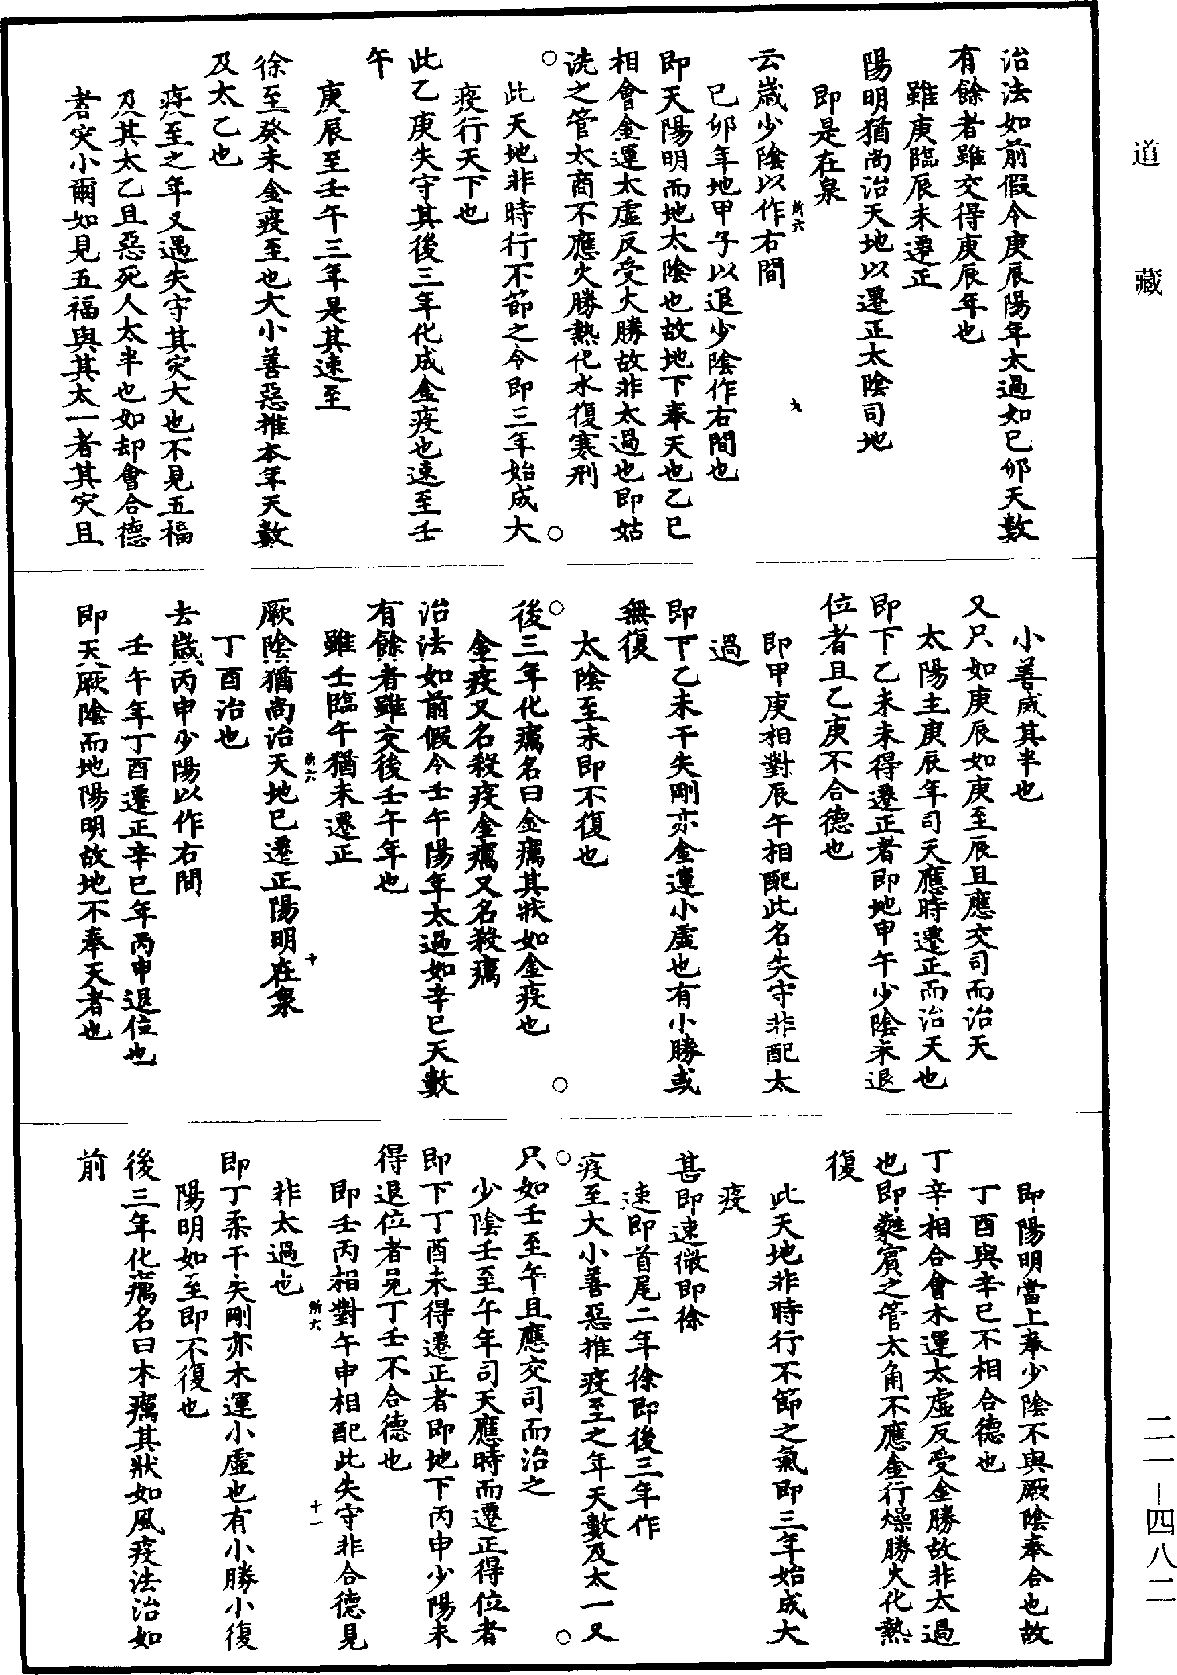 道藏
治法如前假令庚辰陽年太過如己卯天數
有餘者雖交得庚辰年也
雖庚臨辰未遷正
陽明猶尚治天地以遷正太陰司地
即是在泉
云歲少陰以作右間
斯六
己卯年地甲子以退少陰作右間也
即天陽明而地太陰也故地下奉天也乙巳
九
相會金運太虛反受火勝故非太過也即姑
洗之管太商不應火勝熱化水復寒刑
此天地非時行不節之令即三年始成大
疫行天下也
此乙庚失守其後三年化成金疫也速至壬
午
庚辰至壬午三年是其速至
徐至癸未金疫至也大小善惡推本年天數
及太乙也
疫至之年又遇失守其灾大也不見五福
及其太乙且惡死人太半也如却會合德
者灾小爾如見五福與其太一者其灾且
小善減其半也
又只如庚辰如庚至辰且應交司而治天
太陽主庚辰年司天應時遷正而治天也
即下乙未未得遷正者即地甲午少陰未退
位者且乙庚不合德也
即甲庚相對辰午相配此名失守非配太
過
即下乙未干失剛亦金運小虛也有小勝或
無復
太陰至未即不復也
後三年化癘名曰金癘其狀如金疫也
金疫又名殺疫金癘又名殺癘
治法如前假令壬午陽年太過如辛巳天數
有餘者雖交後壬午年也
雖壬臨午猶未遷正
厥陰猶尚治天地已遷正陽明在泉
斯六
十
丁酉治也
去歲丙申少陽以作右間
壬午年丁酉遷正辛巳年丙申退位也
即天厥陰而地陽明故地不奉天者也
即陽明當上奉少陰不與厥陰奉合也故
丁酉與辛巳不相合德也
丁辛相合會木運太虛反受金勝故非太過
也即蕤賓之管太角不應金行燥勝火化熱
復
此天地非時行不節之氣即三年始成大
疫
甚即速微即徐
速即首尾二年徐即後三年作
疫至大小善惡推疫至之年天數及太一又
只如壬至午且應交司而治之
少陰壬至午年司天應時而遷正得位者
即下丁酉未得遷正者即地下丙申少陽未
得退位者見丁壬不合德也
即壬丙相對午申相配此失守非合德見
非太過也
斯六
十一
即丁柔干失剛亦木運小虛也有小勝小復
陽明如至即不復也
後三年化癘名曰木癘其狀如風疫法治如
前
二一－四八二